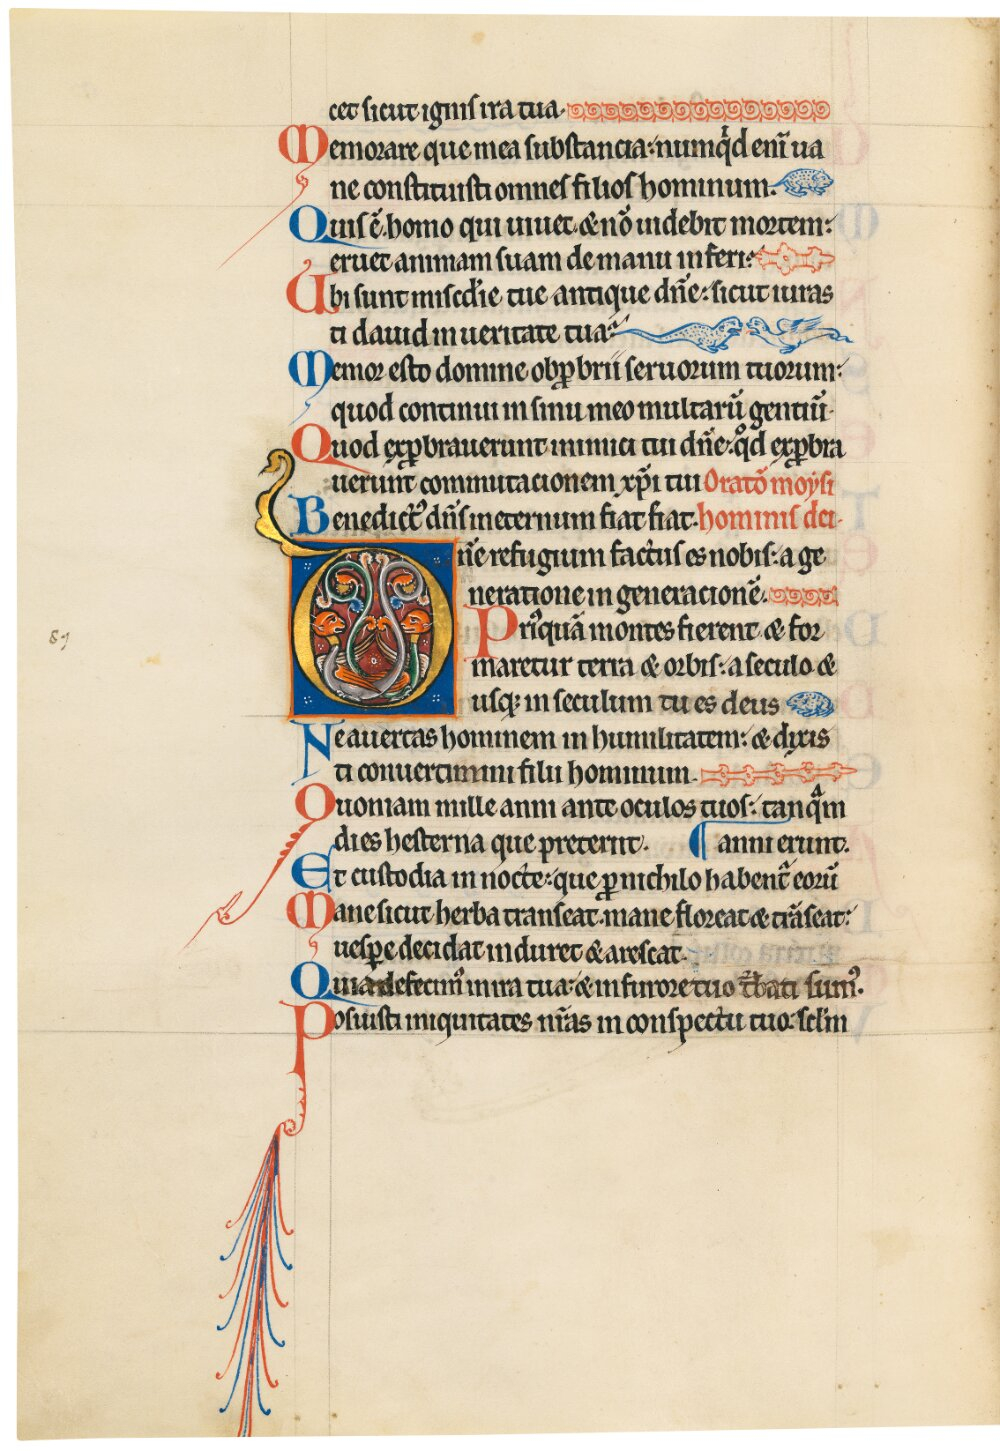 cet sicut ignis ira tua
Memorare que mea substancia: numqͥd eni̅ ua
ne constituisti omnes filios hominum.
Quis e̅ homo qui uiuet. & no̅ uidebit mortem:
eruet animam suam de manu inferi:
Ubi sunt misc̅die tue antique dn̅e: sicut iuras
ti dauid in ueritate tua:
Memor esto domine obꝓbrii seruorum tuorum:
quod continui in sinu meo multaru̅ gentiu̅.
Quod exꝓbrauerunt inimici tui dn̅e: qͦd exꝓbra
uerunt commutacionem xp̅i tui Orato̅ moysi
Benedict᷒ dn̅s ineternum fiat fiat. hominis dei.
Dn̅e refugium factus es nobis: a ge
neratione in generacione̅.
Priͥqua̅ montes fierent. & for
maretur terra & orbis: a seculo &
usq; in seculum tu es deus
Ne auertas hominem in humilitatem: & dixis
ti conuertimini filii hominum.
Quoniam mille anni ante oculos tuos: tanqᷓm
dies hesterna que preteriit. anni erunt.
Et custodia in nocte: que ꝓ nichilo habent̅ eoru̅
Mane sicut herba transeat. mane floreat & tra̅seat:
uesꝑe decidat induret & arescat.
Quia defecim᷒ in ira tua: & in furore tuo t̅bati sum᷒.
Posuisti iniquitates nr̅as in conspectu tuo: sclm̅
89